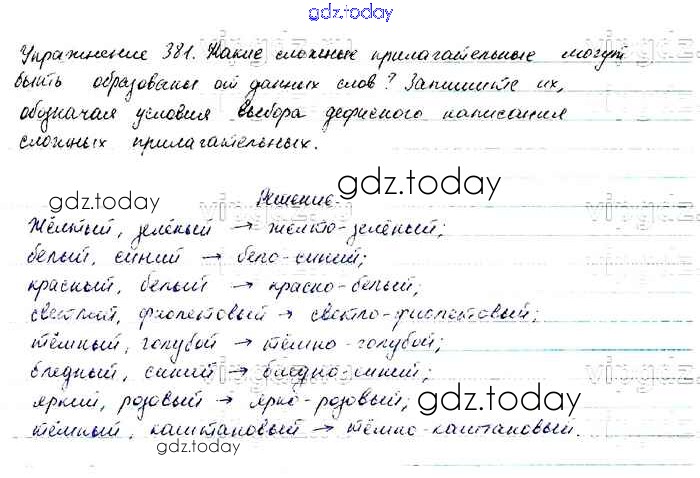 gdz.today
Упражнение 381. Какие сложные прилагательные могут
быть образованы от данных слов? Запишите их,
обозначая условия выбора дефисного написания
сложных прилагательных.
gdz.today
gdz.today
Решение.
Жёлтый, зелёный → жёлто-зелёный;
белый, синий → бело-синий;
красный, белый → красно-белый;
светлый, фиолетовый → светло-фиолетовый;
тёмный, голубой → тёмно-голубой;
бледный, синий → бледно-синий;
яркий, розовый → ярко-розовый;
gdz.today
тёмный, каштановый → тёмно-каштановый.
gdz.today